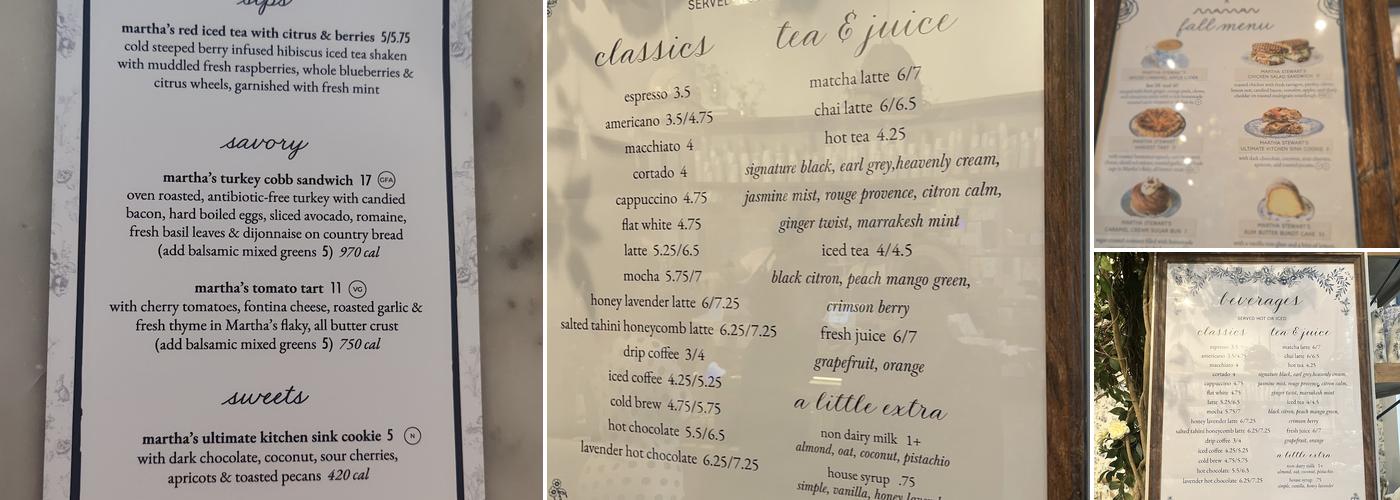 sips
martha's red iced tea with citrus & berries 5/5.75
cold steeped berry infused hibiscus iced tea shaken
with muddled fresh raspberries, whole blueberries &
citrus wheels, garnished with fresh mint
savory
martha's turkey cobb sandwich 17 GFA
oven roasted, antibiotic-free turkey with candied
bacon, hard boiled eggs, sliced avocado, romaine,
fresh basil leaves & dijonnaise on country bread
(add balsamic mixed greens 5) 970 cal
martha's tomato tart 11 VG
with cherry tomatoes, fontina cheese, roasted garlic &
fresh thyme in Martha's flaky, all butter crust
(add balsamic mixed greens 5) 750 cal
sweets
martha's ultimate kitchen sink cookie 5 N
with dark chocolate, coconut, sour cherries,
apricots & toasted pecans 420 cal
SERVED
classics
espresso 3.5
americano 3.5/4.75
macchiato 4
cortado 4
cappuccino 4.75
flat white 4.75
latte 5.25/6.5
mocha 5.75/7
honey lavender latte 6/7.25
salted tahini honeycomb latte 6.25/7.25
drip coffee 3/4
iced coffee 4.25/5.25
cold brew 4.75/5.75
hot chocolate 5.5/6.5
lavender hot chocolate 6.25/7.25
tea & juice
matcha latte 6/7
chai latte 6/6.5
hot tea 4.25
signature black, earl grey,heavenly cream,
jasmine mist, rouge provence, citron calm,
ginger twist, marrakesh mint
iced tea 4/4.5
black citron, peach mango green,
crimson berry
fresh juice 6/7
grapefruit, orange
a little extra
non dairy milk 1+
almond, oat, coconut, pistachio
house syrup .75
simple, vanilla, honey
fall menu
MARTHA STEWART'S
CHICKEN SALAD SANDWICH
MARTHA STEWART'S
ULTIMATE KITCHEN SINK COOKIE
MARTHA STEWART'S
CARAMEL CREAM SUGAR BUN
MARTHA STEWART'S
RUM BUTTER BUNDT CAKE
beverages
SERVED HOT OR ICED
classics
espresso 3.5
americano 3.5/4.75
macchiato 4
cortado 4
cappuccino 4.75
flat white 4.75
latte 5.25/6.5
mocha 5.75/7
honey lavender latte 6/7.25
salted tahini honeycomb latte 6.25/7.25
drip coffee 3/4
iced coffee 4.25/5.25
cold brew 4.75/5.75
hot chocolate 5.5/6.5
lavender hot chocolate 6.25/7.25
tea & juice
matcha latte 6/7
chai latte 6/6.5
hot tea 4.25
signature black, earl grey,heavenly cream,
jasmine mist, rouge provence, citron calm,
ginger twist, marrakesh mint
iced tea 4/4.5
black citron, peach mango green,
crimson berry
fresh juice 6/7
grapefruit, orange
a little extra
non dairy milk 1+
almond, oat, coconut, pistachio
house syrup .75
simple, vanilla, honey lavender